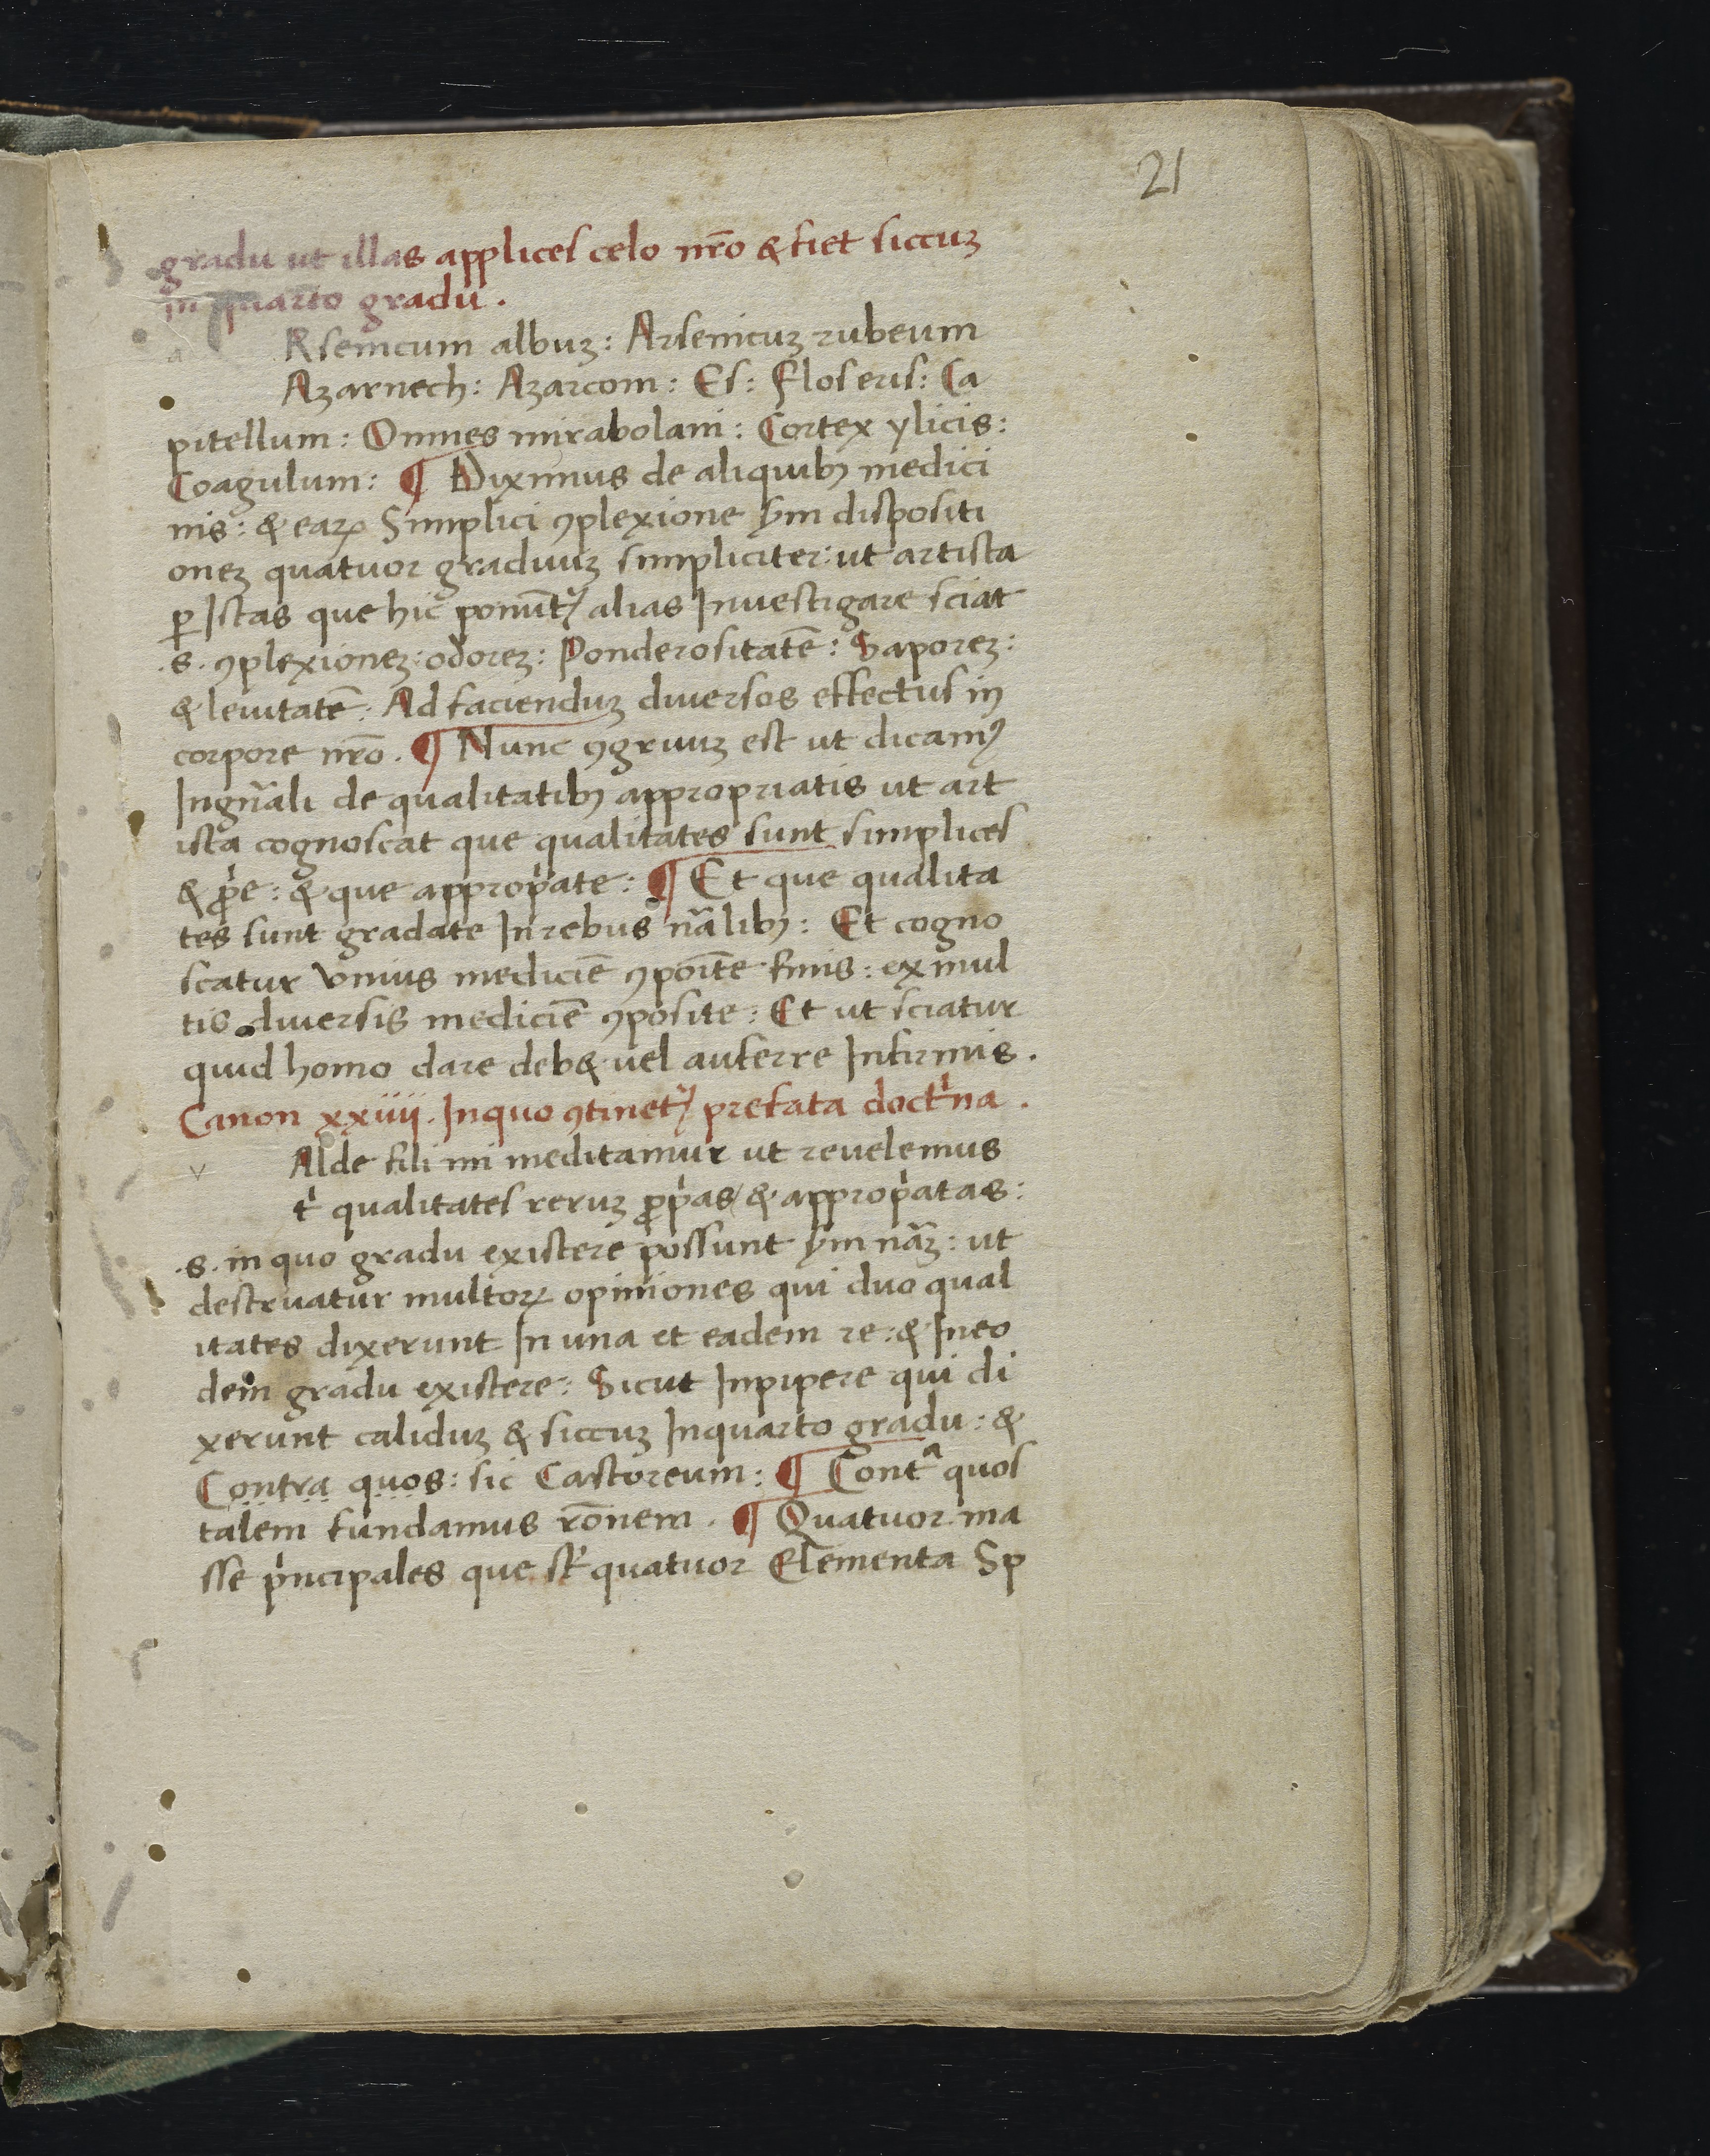 21
gradu ut illas applices celo nr̄o & fiet siccuꝫ
in quarto gradu.
a Rsenicum albuꝫ: Arsenicuꝫ rubeum
Aꝫarnech: Aꝫarcom: Es: Flos eris: Ca
pitellum: Omnes mirabolani: Cortex ylicis:
Coagulum: ¶ Diximus de aliquibꝫ medici
nis: & eaꝝ Simplici ꝯplexione ẜm dispositi
oneꝫ quatuor graduuꝫ simpliciter: ut artista
ꝑ Istas que hic ponūt᷑ alias Inuestigare sciat
.s. ꝯplexioneꝫ: odoreꝫ: Ponderositatē: Saporeꝫ:
& leuitatē: Ad facienduꝫ diuersos effectus in
corpore nr̄o. ¶ Nunc ꝯgruuꝫ est ut dicamꝰ
Ingn̄ali de qualitatibꝫ appropriatis ut art
ista cognoscat que qualitates sunt simplices
& ꝓp̍e: & que approp̍ate: ¶ Et que qualita
tes sunt gradate In rebus nālibꝫ: Et cogno
scatur vnius mediciē ꝯpoīte finis: ex mul
tis diuersis mediciē ꝯposite: Et ut sciatur
quid homo dare deb& uel auferre Infirmis.
Canon xxiiii. In quo ꝯtinet᷑ prefata doct̍na.
v Alde fili mi meditamur ut reuelemus
t̍ qualitates reruꝫ ꝓp̍as / & approp̍atas:
.s. in quo gradu existere possunt ẜm nāꝫ: ut
destruatur multoꝝ opiniones qui duo qual
itates dixerunt In una et eadem re: & In eo
dem gradu existere: Sicut In pipere qui di
xerunt caliduꝫ & siccuꝫ In quarto gradu: &
Contra quos: sic Castoreum: ¶ Contᵃ quos
talem fundamus rōnem. ¶ Quatuor ma
sse p̍ncipales que st̍ quatuor Elementa Sp